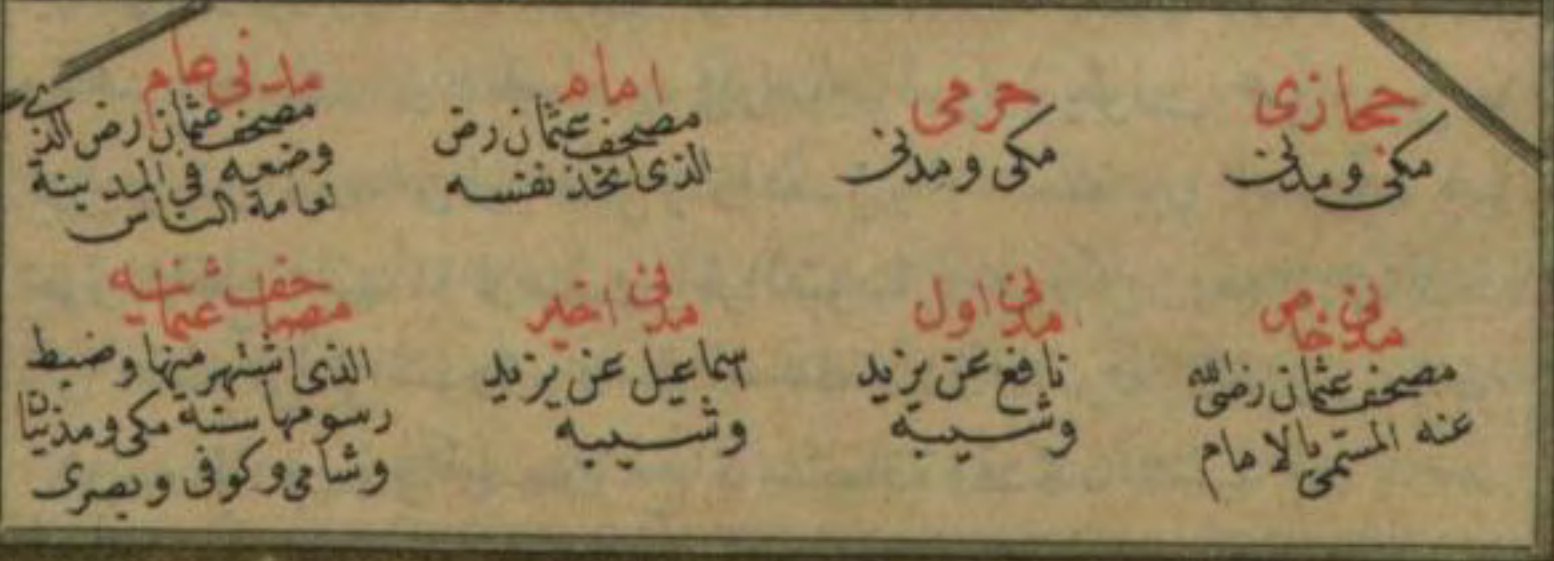 حجازى
مكى ومدنى
حرمى
مكى ومدنى
امام
مصحف عثمان رض
الذى اتخذ نفسه
مدنى عام
مصحف عثمان رض الذى
وضعه فى المدينة
لعامة الناس
مدنى خاص
مصحف عثمان رضى الله
عنه المسمى بالامام
مدنى اول
نافع عن يزيد
وشيبه
مدنى اخير
اسماعيل عن يزيد
وشيبه
مصاحف عثمانيه
الذى اشتهر منها وضبط
رسومها ستة مكى ومدنيان
وشامى وكوفى وبصرى